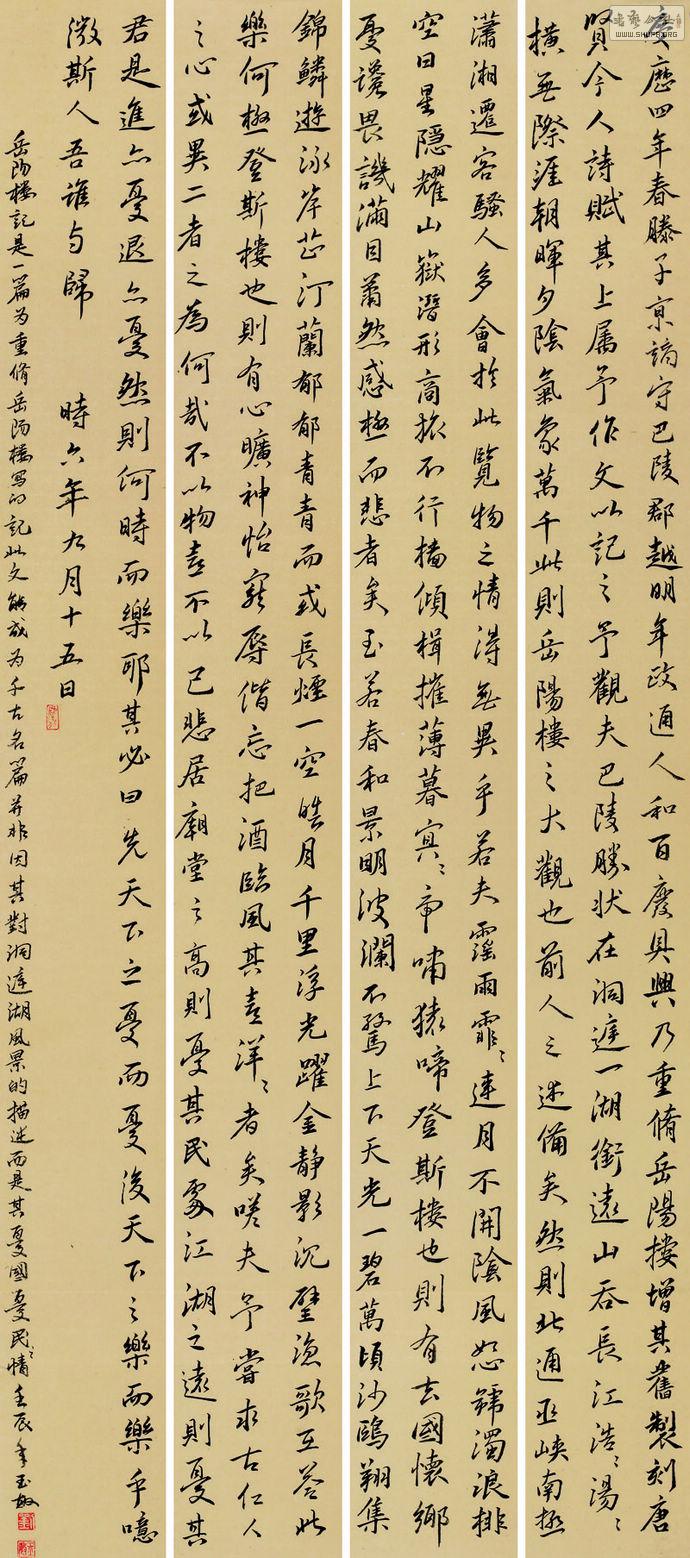 慶歷四年春滕子京謫守巴陵郡越明年政通人和百廢具興乃重脩岳陽樓增其舊製刻唐
賢今人詩賦其上属予作文以記之予觀夫巴陵勝狀在洞庭一湖銜遠山吞長江浩〻湯〻
橫無際涯朝暉夕陰氣象萬千此則岳陽樓之大觀也前人之述備矣然則北通巫峽南極
瀟湘遷客騷人多會於此覽物之情得無異乎若夫霪雨霏〻連月不開陰風怒號濁浪排
空日星隱耀山嶽潛形商旅不行檣傾楫摧薄暮冥〻虎嘯猿啼登斯樓也則有去國懷鄉
憂讒畏譏滿目蕭然感極而悲者矣至若春和景明波瀾不驚上下天光一碧萬頃沙鷗翔集
錦鱗游泳岸芷汀蘭郁郁青青而或長煙一空皓月千里浮光躍金静影沉璧漁歌互答此
樂何極登斯樓也則有心曠神怡寵辱偕忘把酒臨風其喜洋〻者矣嗟夫予嘗求古仁人
之心或異二者之為何哉不以物喜不以己悲居廟堂之高則憂其民處江湖之遠則憂其
君是進亦憂退亦憂然則何時而樂耶其必曰先天下之憂而憂後天下之樂而樂乎噫
微斯人吾誰与歸 時六年九月十五日
岳陽樓記是一篇为重脩岳陽樓写的記此文能成为千古名篇并非因其對洞庭湖風景的描述而是其憂國憂民〻情壬辰年玉敏
WWW.SHUFA.ORG